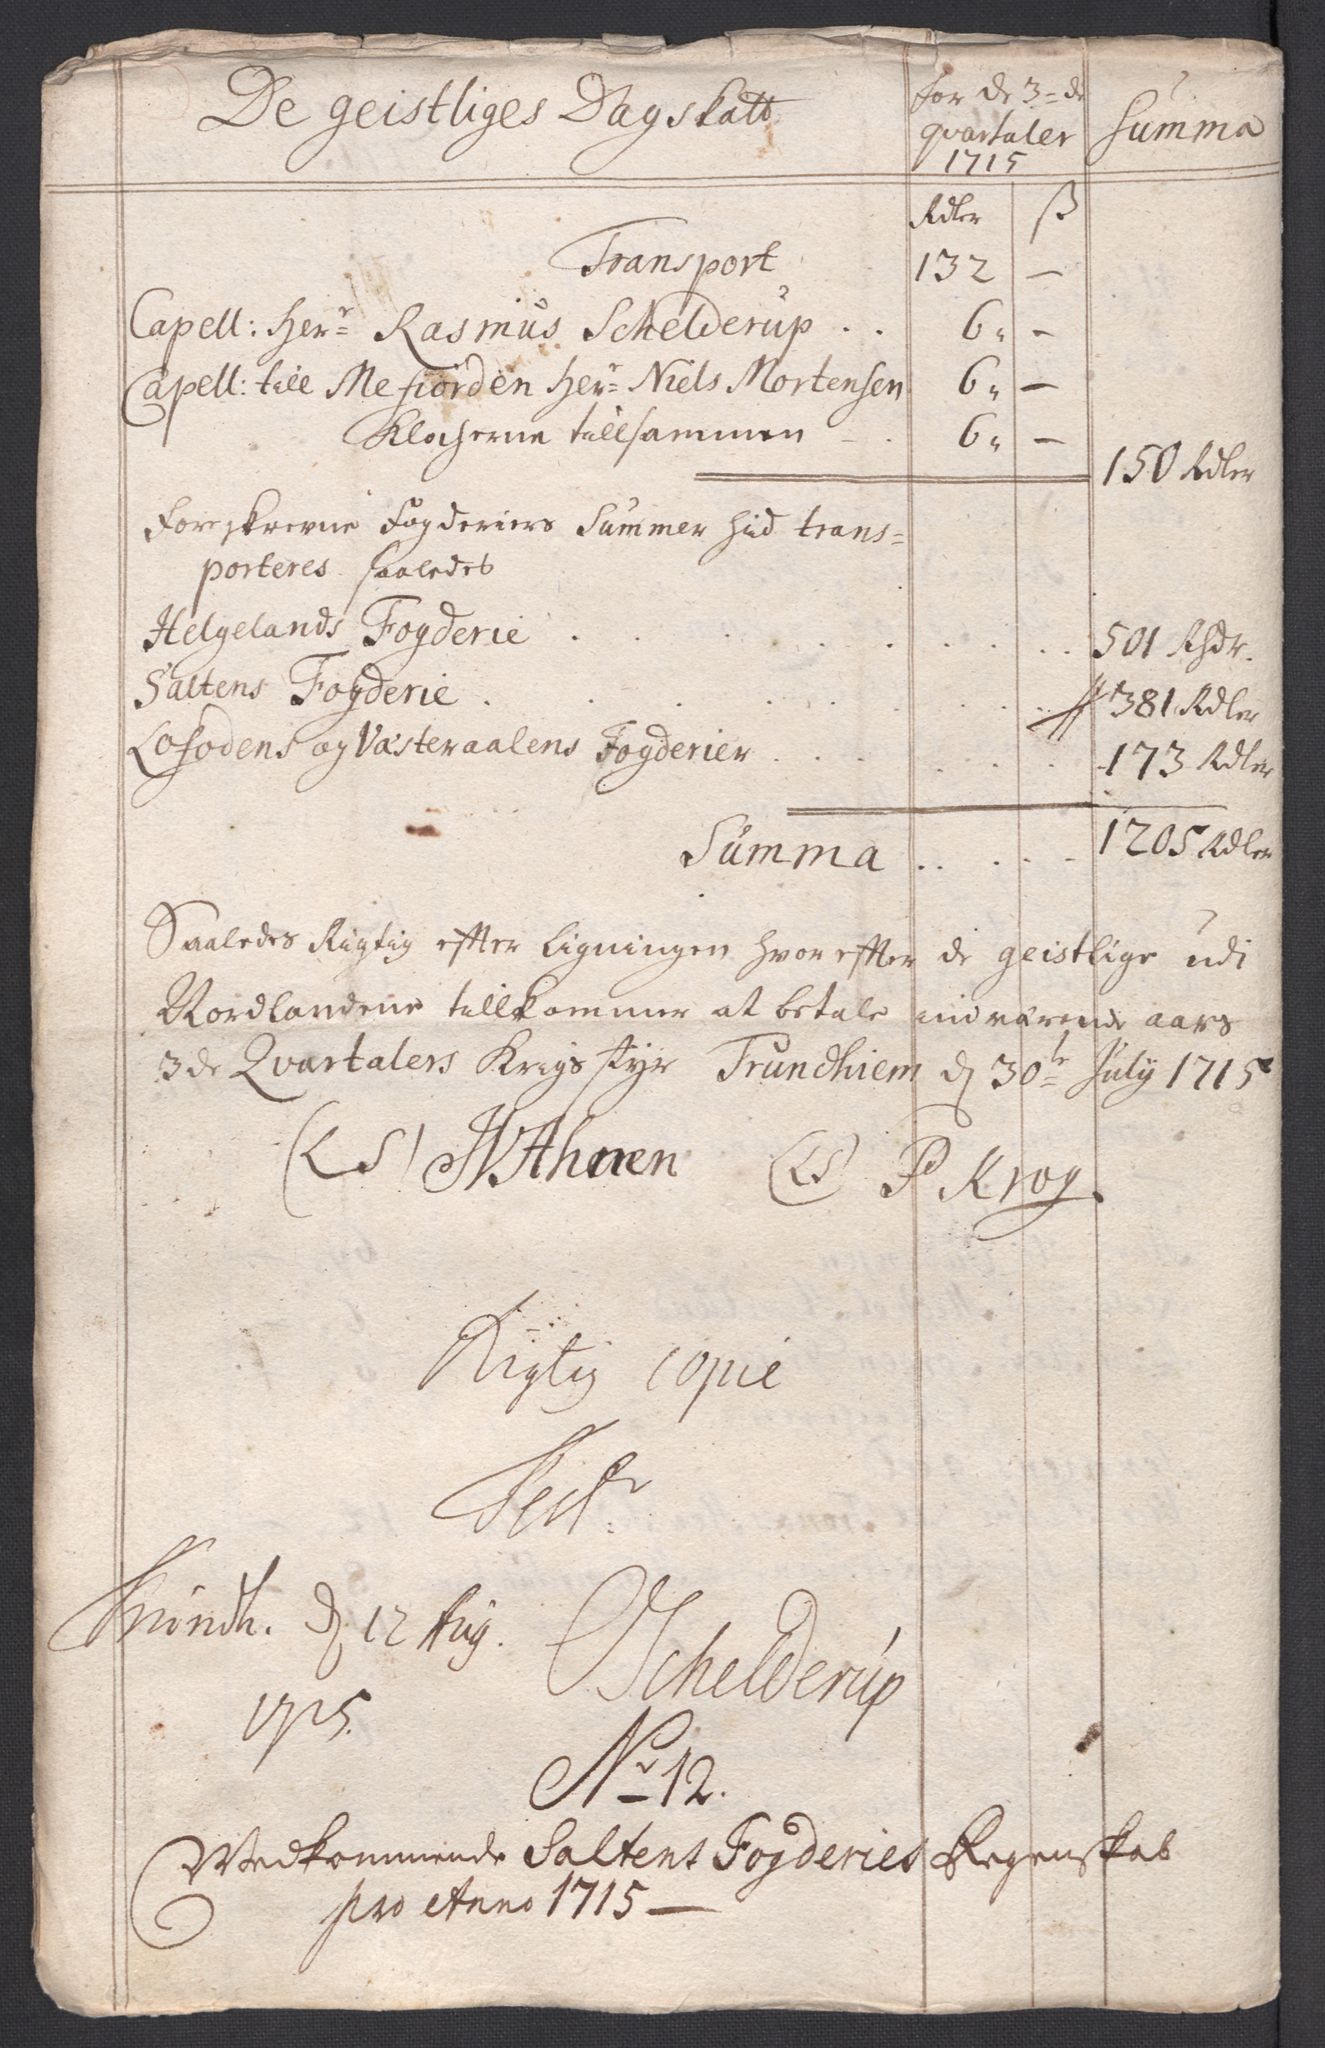 De geistliges Dagskatt
for de 3=de
qvartaler
1715
Summa
Rdler ß
Transport 132 —
Capell: Herr Rasmus Schelderup . . 6 „ —
Capell: till Mefiorden Herr Niels Mortensen 6 „ —
Klocherne tillsammen 6 „ —
150 Rdler
Foreskrevne Fogderiers Summer hid trans=
porteres saaledes
Helgelands Fogderie . . . 501 Rhdr.
Saltens Fogderie . . . 381 Rdler
Lofodens og Vasteraalens Fogderier . . . 173 Rdler
Summa . . . 1205 Rdler
Saaledes Rigtig effter Ligningen hvor effter de geistlige udi
Nordlandene tillkommer at betale indværende aars
3de Qvartalers Krigs styr Trundhiem d 30te July 1715
(LS) HVAhnen (LS) P Krog.
Rigtig copie
Test:
Trundh. d 12 Aug.
1715.
OSchelderup
No 12.
Vedkommende Saltens Fogderies Regenskab
pro Anno 1715 —